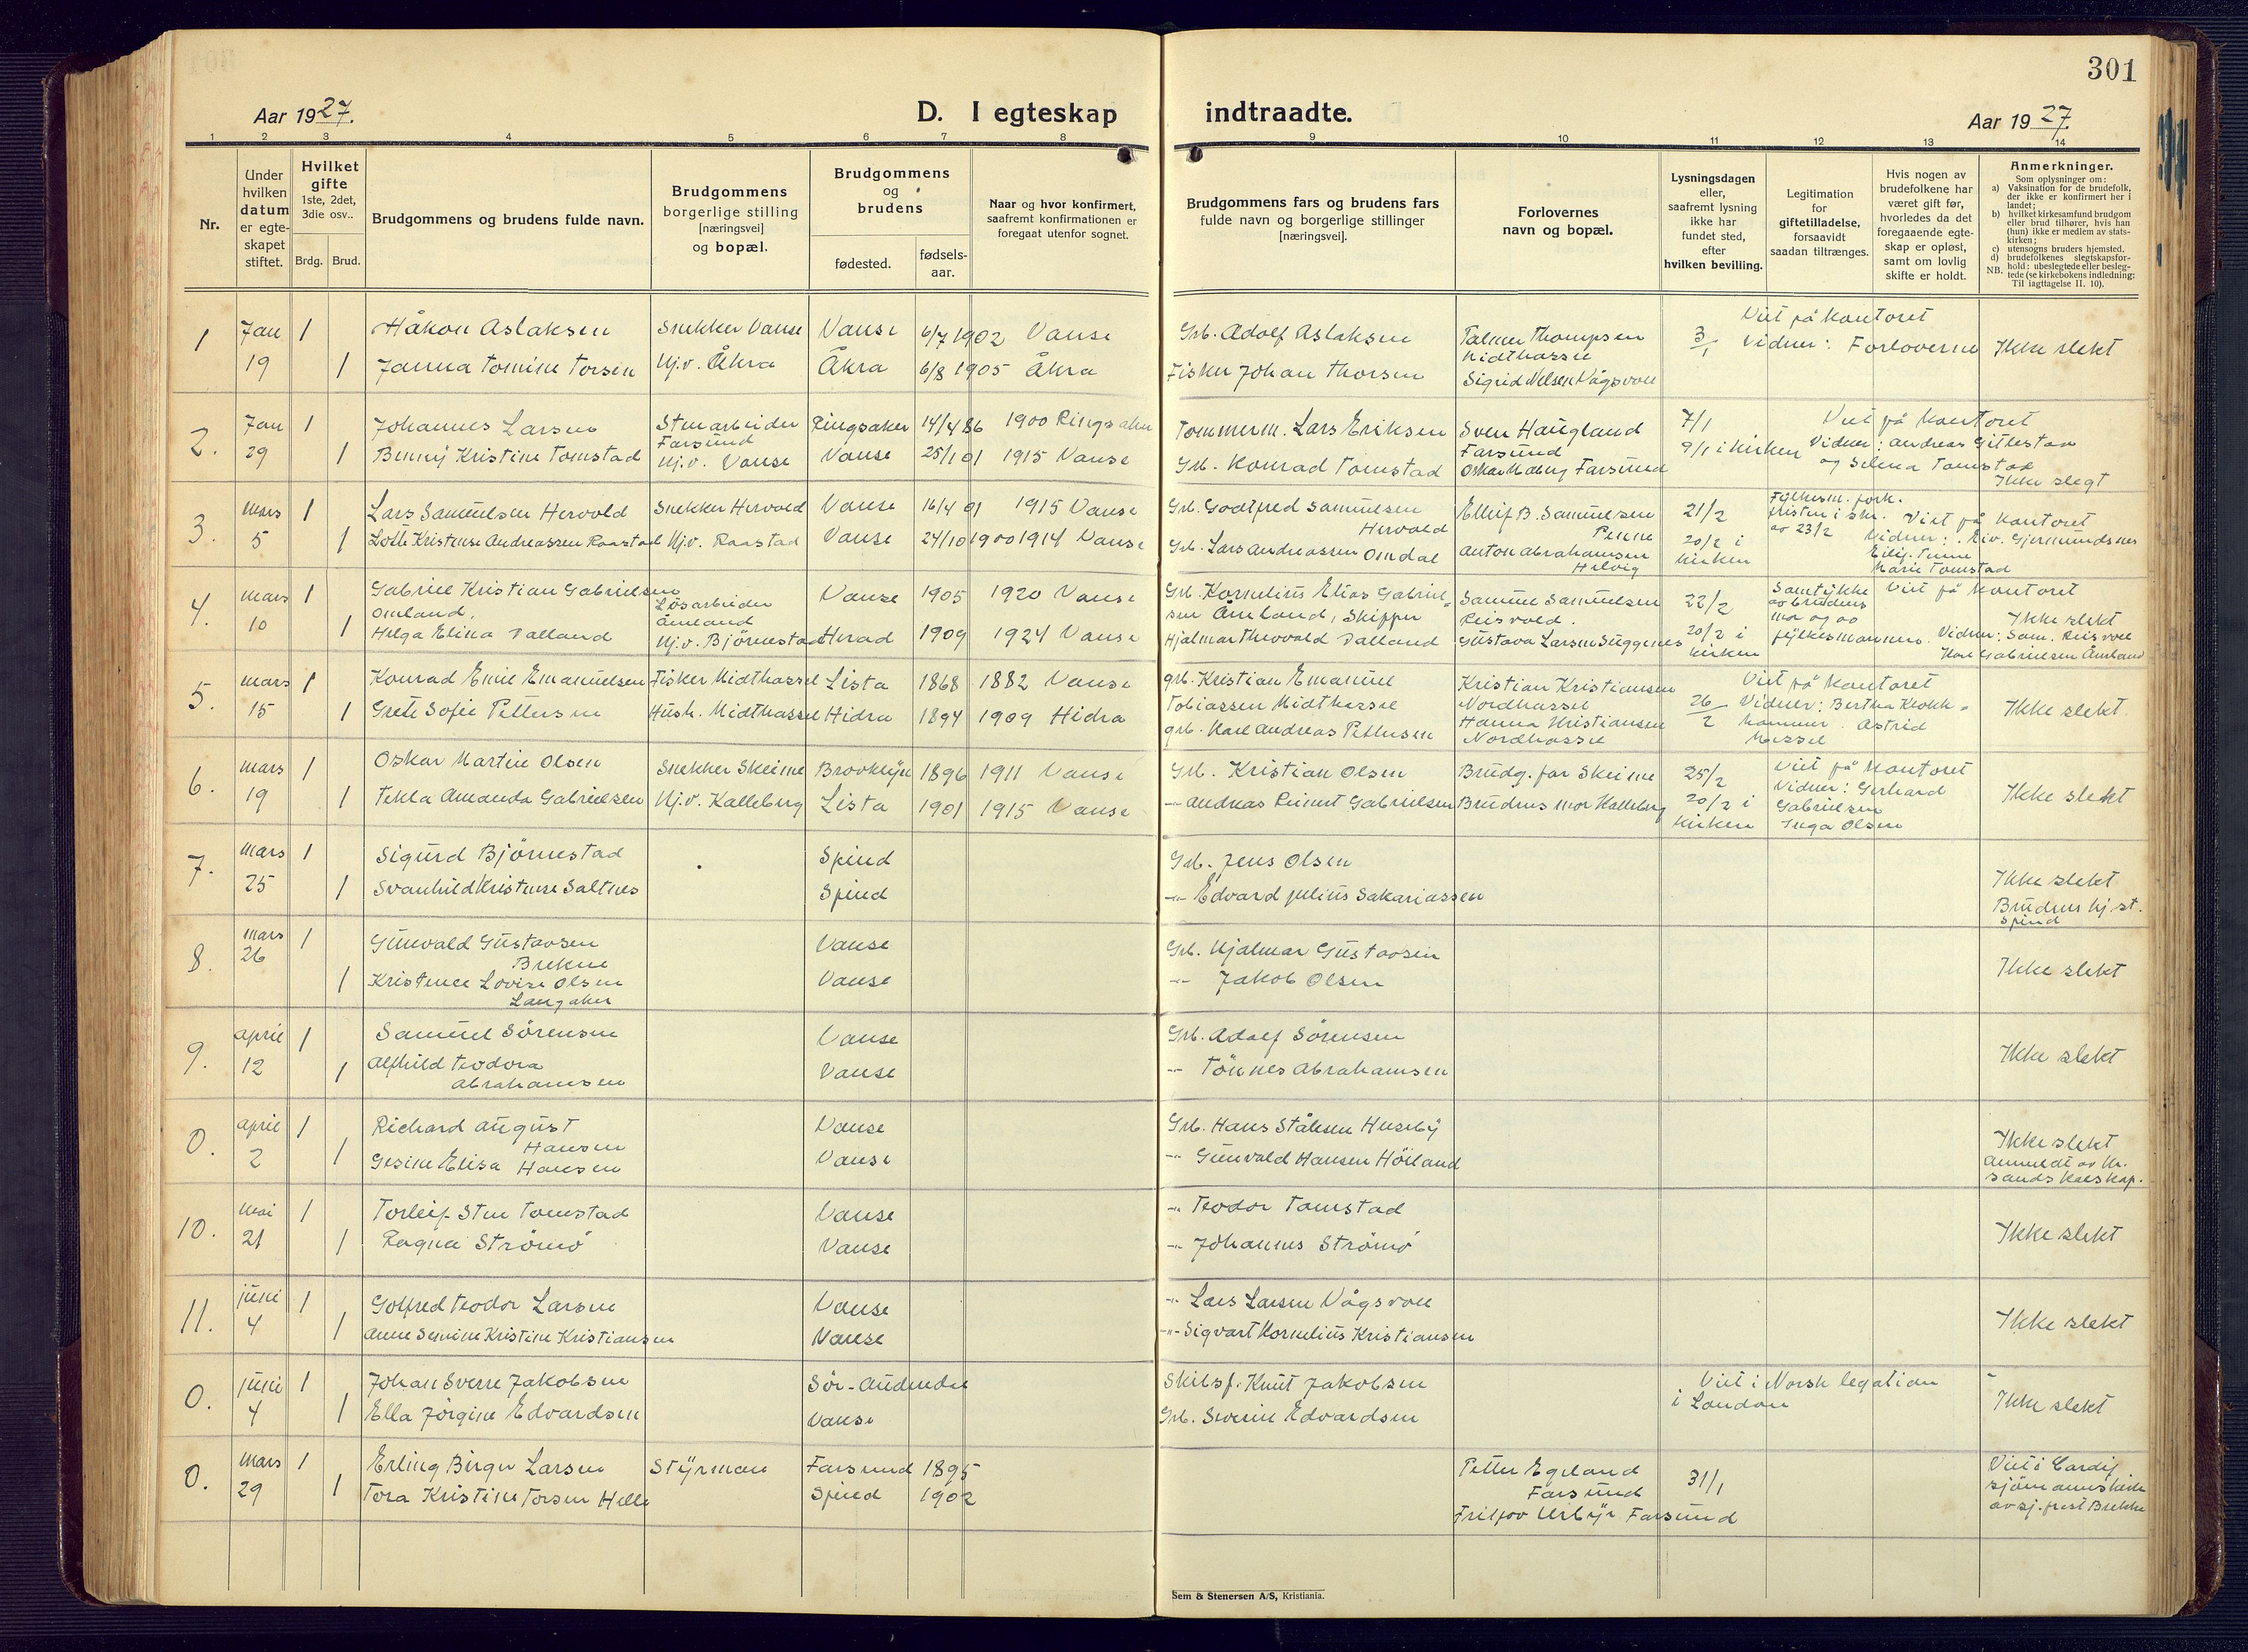 301
Aar 1927.
D. I egteskap indtraadte.
Aar 1927
1 2 3 4 5 6 7 8 9 10 11 12 13 14
Nr.
Under hvilken datum er egteskapet stiftet.
Hvilket gifte 1ste, 2det, 3die osv..
Brdg. Brud.
Brudgommens og brudens fulde navn.
Brudgommens borgerlige stilling [næringsvei] og bopæl.
Brudgommens og brudens
fødested.
fødsels-aar.
Naar og hvor konfirmert, saafremt konfirmationen er foregaat utenfor sognet.
Brudgommens fars og brudens fars fulde navn og borgerlige stillinger [næringsvei].
Forlovernes navn og bopæl.
Lysningsdagen eller, saafremt lysning ikke har fundet sted, efter hvilken bevilling.
Legitimation for giftetilladelse, forsaavidt saadan tiltrænges.
Hvis nogen av brudefolkene har været gift før, hvorledes da det foregaaende egteskap er opløst, samt om lovlig skifte er holdt.
Anmerkninger.
Som oplysninger om:
a) Vaksination for de brudefolk, der ikke er konfirmert her i landet;
b) hvilket kirkesamfund brudgom eller brud tilhører, hvis han (hun) ikke er medlem av statskirken;
c) utensogns bruders hjemsted.
d) brudefolkenes slegtskapsforhold: ubeslegtede eller beslegtede (se kirkebokens indledning: Til iagttagelse II. 10).
NB.
1 Jan 1 Håkon Aslaksen Snekker Vanse Vanse 6/7 1902 Vanse Grb. Adolf Aslaksen Palmer Thompsen Midthassel 3/1 Viet på kontoret
19 1 Janna Tomine Torsen Hj.v. Åkra Åkra 6/8 1905 Åkra Fisker Johan Thorsen Sigrid Nelsen Vågsvoll Vidner: Forloverne Ikke slekt
2. Jan 1 Johannes Larsen Stenarbeider Farsund Ringsaker 14/4 86 1900 Ringsaker Tømmerm. Lars Eriksen Sven Haugland Farsund 7/1 Viet på kontoret
29 1 Benny Kristine Tomstad Hj.v. Vanse Vanse 25/1 01 1915 Vanse Grb. Konrad Tomstad Oskar Moberg Farsund 9/1 i kirken Vidner: Andreas Gitlestad og Selma Tomstad
Ikke slegt
3. mars 1 Lars Samuelsen Hervold Snekker Hervold Vanse 16/4 01 1915 Vanse Grb. Godtfred Samuelsen Hervold Ellif B. Samuelsen Penne 21/2 Fylkesm. fork. fristen i skr. av 23/2 Viet på kontoret
5 1 Lotte Kristense Andreassen Raastad Hj.v. Raastad Vanse 24/10 1900 1914 Vanse Grb. Lars Andreassen Omdal Anton Abrahamsen Helvig 20/2 i kirken Vidner: Gjermundsnes
Marie Tomstad
4. mars 1 Gabriel Kristian Gabrielsen Omland, Løsarbeider Åmland Vanse 1905 1920 Vanse Grb. Kornelius Elias Gabrielsen Åmland, Skipper Samuel Samuelsen Reisvold. 22/2 Samtykke av brudens mor og av fylkesmannen. Viet på kontoret
10 1 Helga Elina Dalland Hj.v. Björnestad Herad 1909 1924 Vanse Hjalmar Thorvald Dalland Gustava Larsen Süggenes 20/2 i kirken Ikke slekt
Vidner: Sam. Reisvoll
Karl Gabrielsen Åmland
5. mars 1 Konrad Emil Emanuelsen Fisker Midthassel Lista 1868 1882 Vanse grb. Kristian Emanuel Tobiassen Midthassel Kristian Kristiansen Nordhassel 26/2 Viet på kontoret
15 1 Grete Sofie Pettersen Hush. Midthassel Hidra 1894 1909 Hidra grb. Karl Andreas Pettersen Hanna Kristiansen Nordhassel Vidner: Bertha Klokkhammer. Astrid Ikke slekt
6. mars 1 Oskar Martin Olsen Snekker Skeime Brooklyn 1896 1911 Vanse Grb. Kristian Olsen Brudg. far Skeime 25/2 Viet på kontoret
19 1 Tekla Amanda Gabrielsen Hj.v. Kalleberg Lista 1901 1915 Vanse -"- Andreas Reinert Gabrielsen Brudens mor Kalleberg 20/2 i kirken Vidner: Gerhard Gabrielsen Inga Olsen Ikke slekt
7. mars 1 Sigurd Björnestad Spind Grb. Jens Olsen
25 1 Svanhild Kristense Saltnes Spind -"- Edvard Julius Sakariassen Ikke slekt Brudens hj.st. Spind
8. mars 1 Gunvald Gustavsen Brekne Vanse Grb. Hjalmar Gustavsen
26 1 Kristence Lovise Olsen Langaker Vanse -"- Jakob Olsen Ikke slekt
9. april 1 Samuel Sörensen Vanse Grb. Adolf Sörensen
12 1 Alfhild Teodora Abrahamsen Vanse -"- Tönnes Abrahamsen Ikke slekt
0. april 1 Richard August Hansen Vanse Grb. Hans Ståhlsen Huseby
2 1 Gesine Elisa Hansen Vanse -"- Gunvald Hansen Höiland Ikke slekt anmeldt av Kr.sands
10. mai 1 Torleif Sten Tomstad Vanse -"- Teodor Tomstad
21 1 Ragna Strömö Vanse -"- Johannes Strömö Ikke slekt
11. juni 1 Golfred Teodor Larsen Vanse -"- Lars Larsen Vågsvoll
4 1 Anne Servine Kristine Kristiansen Vanse -"- Sigvart Kornelius Kristiansen Ikke slekt
0. juni 1 Johan Sverre Jakobsen Sör-Audnedal Skibsf. Knut Jakobsen Viet i Norsk legation i London
4 1 Ella Jörgine Edvardsen Vanse Grb. Severin Edvardsen Ikke slekt
0. mars 1 Erling Birger Larsen Styrman Farsund 1895 Petter Egeland Farsund 31/1 Viet i Cardif sjömannskirke av sj.prest Brekke
29 1 Tora Kristine Torsen Helle Spind 1902 Fritjov Farsund
Sem & Stenersen A/S, Kristiania.